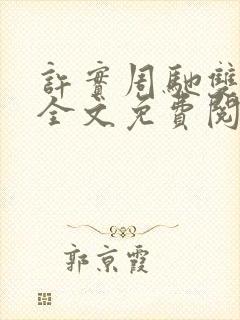 許實周馳雙
全文免費閱
郭京霞